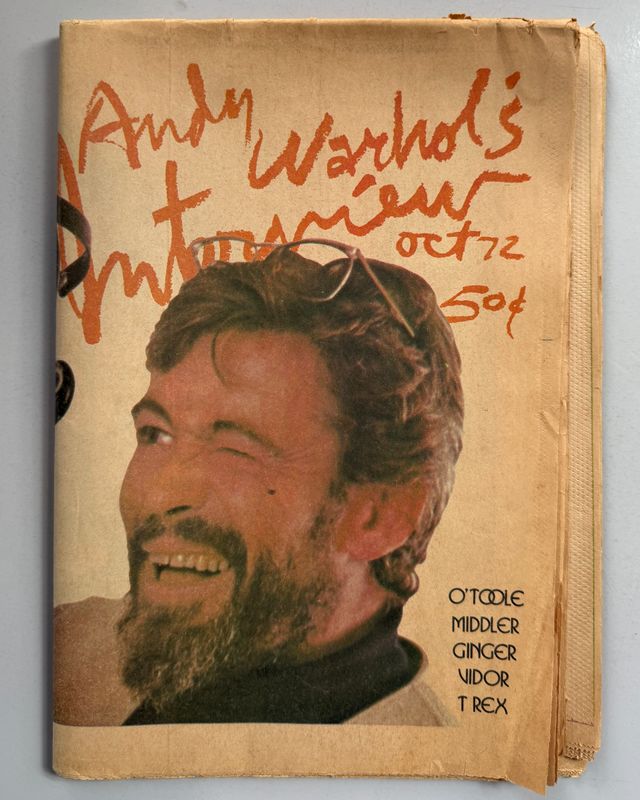 Andy Warhol's
Interview
oct 72
50¢
O'TOOLE
MIDDLER
GINGER
VIDOR
T REX